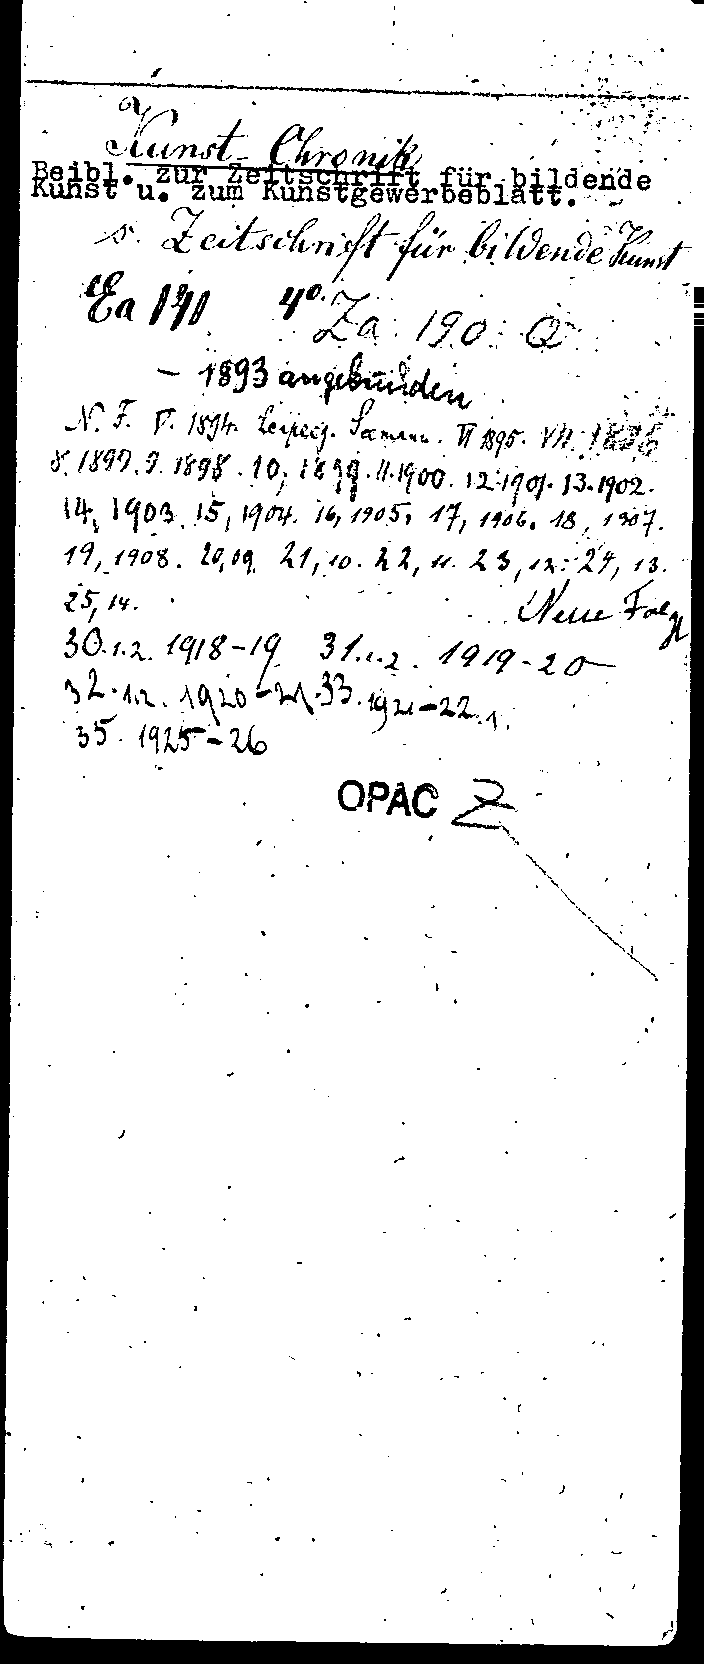 Kunst-Chronik
Beibl. zur Zeitschrift für bildende
Kunst u. zum Kunstgewerbeblatt.
s. Zeitschrift für bildende Kunst
Ea 4°. Za 190 Q
- 1893 angebunden
N. F. V. 1894. Leipzig. Seemann. VI 1895. VII. 1896
8. 1897. 9. 1898. 10, 1899. 11. 1900. 12. 1901. 13. 1902.
14, 1903. 15, 1904. 16, 1905. 17, 1906. 18, 1907.
19, 1908. 20, 09. 21, 10. 22, 11. 23, 12. 24, 13.
25, 14. Neue Folge
30.1.2. 1918-19 31.1.2. 1919-20
32.1.2. 1920-21. 33. 1921-22. 1.
35. 1925-26
OPAC Z